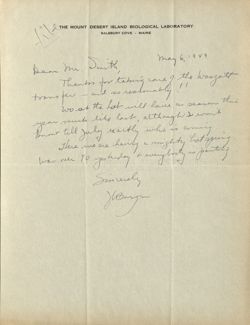 file
THE MOUNT DESERT ISLAND BIOLOGICAL LABORATORY
SALSBURY COVE - MAINE
May 6, 1949
Dear Mr. Smith,
Thanks for taking care of the
transfer - and so reasonably!!
We at the lab will have a season this
year much like last, although I won't
know till July exactly who is coming
Here we are having a mighty hot spring
was over 70 yesterday & everybody is
Sincerely